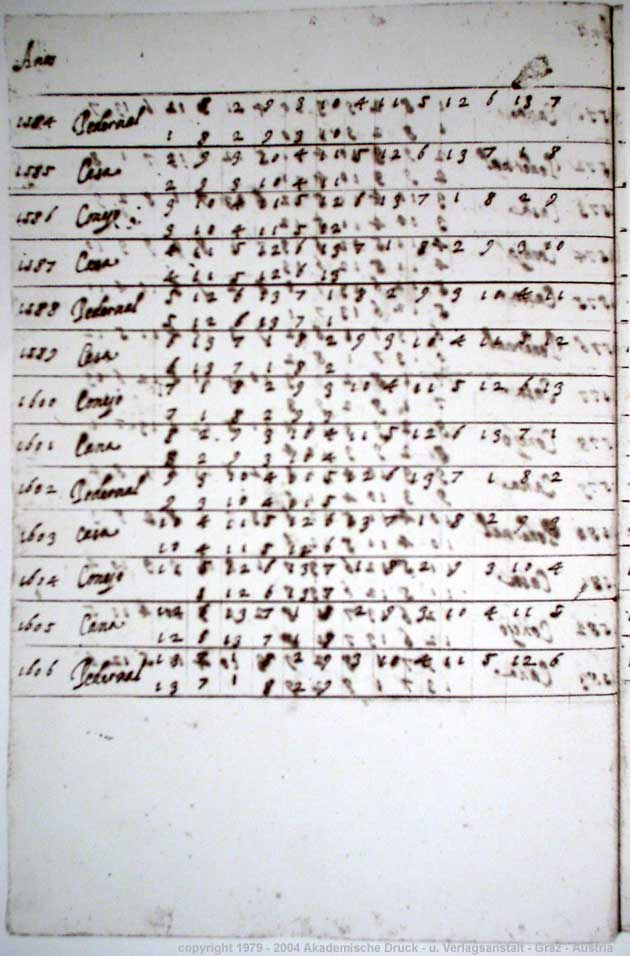 Anos
1584 Pedernal 1 8 2 9 3 10 4 11 5 12 6 13 7
1 8 2 9 3 10
1585 Casa 2 9 3 10 4 11 5 12 6 13 7 1 8
2 9 3 10 4 11
1586 Conejo 3 10 4 11 5 12 6 13 7 1 8 2 9
3 10 4 11 5 12
1587 Cana 4 11 5 12 6 13 7 1 8 2 9 3 10
4 11 5 12 6 13
1588 Pedernal 5 12 6 13 7 1 8 2 9 3 10 4 11
5 12 6 13 7 1
1589 Casa 6 13 7 1 8 2 9 3 10 4 11 5 12
6 13 7 1 8 2
1600 Conejo 7 1 8 2 9 3 10 4 11 5 12 6 13
7 1 8 2 9 3
1601 Cana 8 2 9 3 10 4 11 5 12 6 13 7 1
8 2 9 3 10 4
1602 Pedernal 9 3 10 4 11 5 12 6 13 7 1 8 2
9 3 10 4 11 5
1603 Casa 10 4 11 5 12 6 13 7 1 8 2 9 3
10 4 11 5 12 6
1604 Conejo 11 5 12 6 13 7 1 8 2 9 3 10 4
5 12 6 13 7
1605 Cana 12 6 13 7 1 8 2 9 3 10 4 11 5
12 6 13 7 1 8
1606 Pedernal 13 7 1 8 2 9 3 10 4 11 5 12 6
13 7 1 8 2 9
copyright 1979 - 2004 Akademische Druck - u. Verlagsanstalt - Graz - Austria